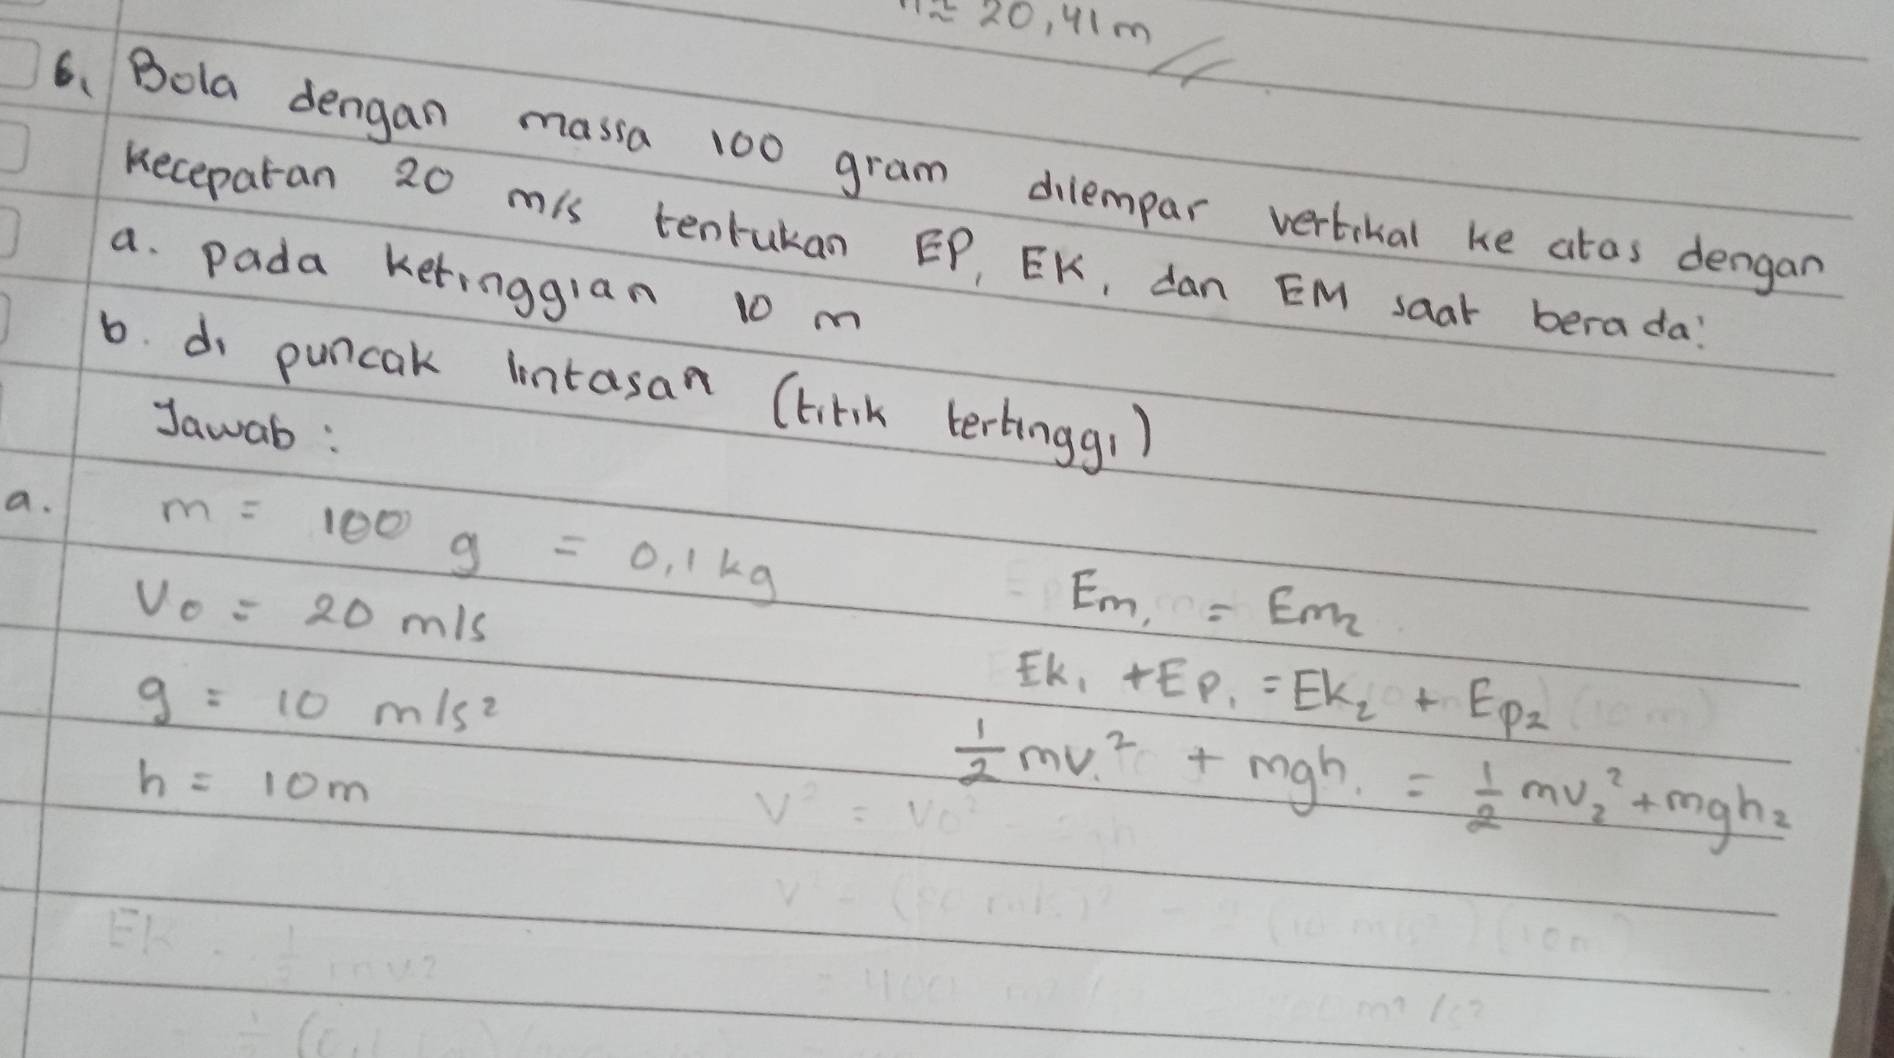 ≈ 20,41 m
6. Bola dengan massa 100 gram dilempar vertikal ke atas dengan
kecepatan 20 m/s tentukan EP, EK, dan EM saat berada:
a. pada ketinggian 10 m
b. di puncak lintasan (titik tertinggi)
Jawab :
a. m = 100 g = 0,1 kg
Em₁ = Em₂
V₀ = 20 m/s
Ek₁ + Ep₁ = Ek₂ + Ep₂
g = 10 m/s²
½ mv₁² + mgh₁ = ½ mv₂² + mgh₂
h = 10 m